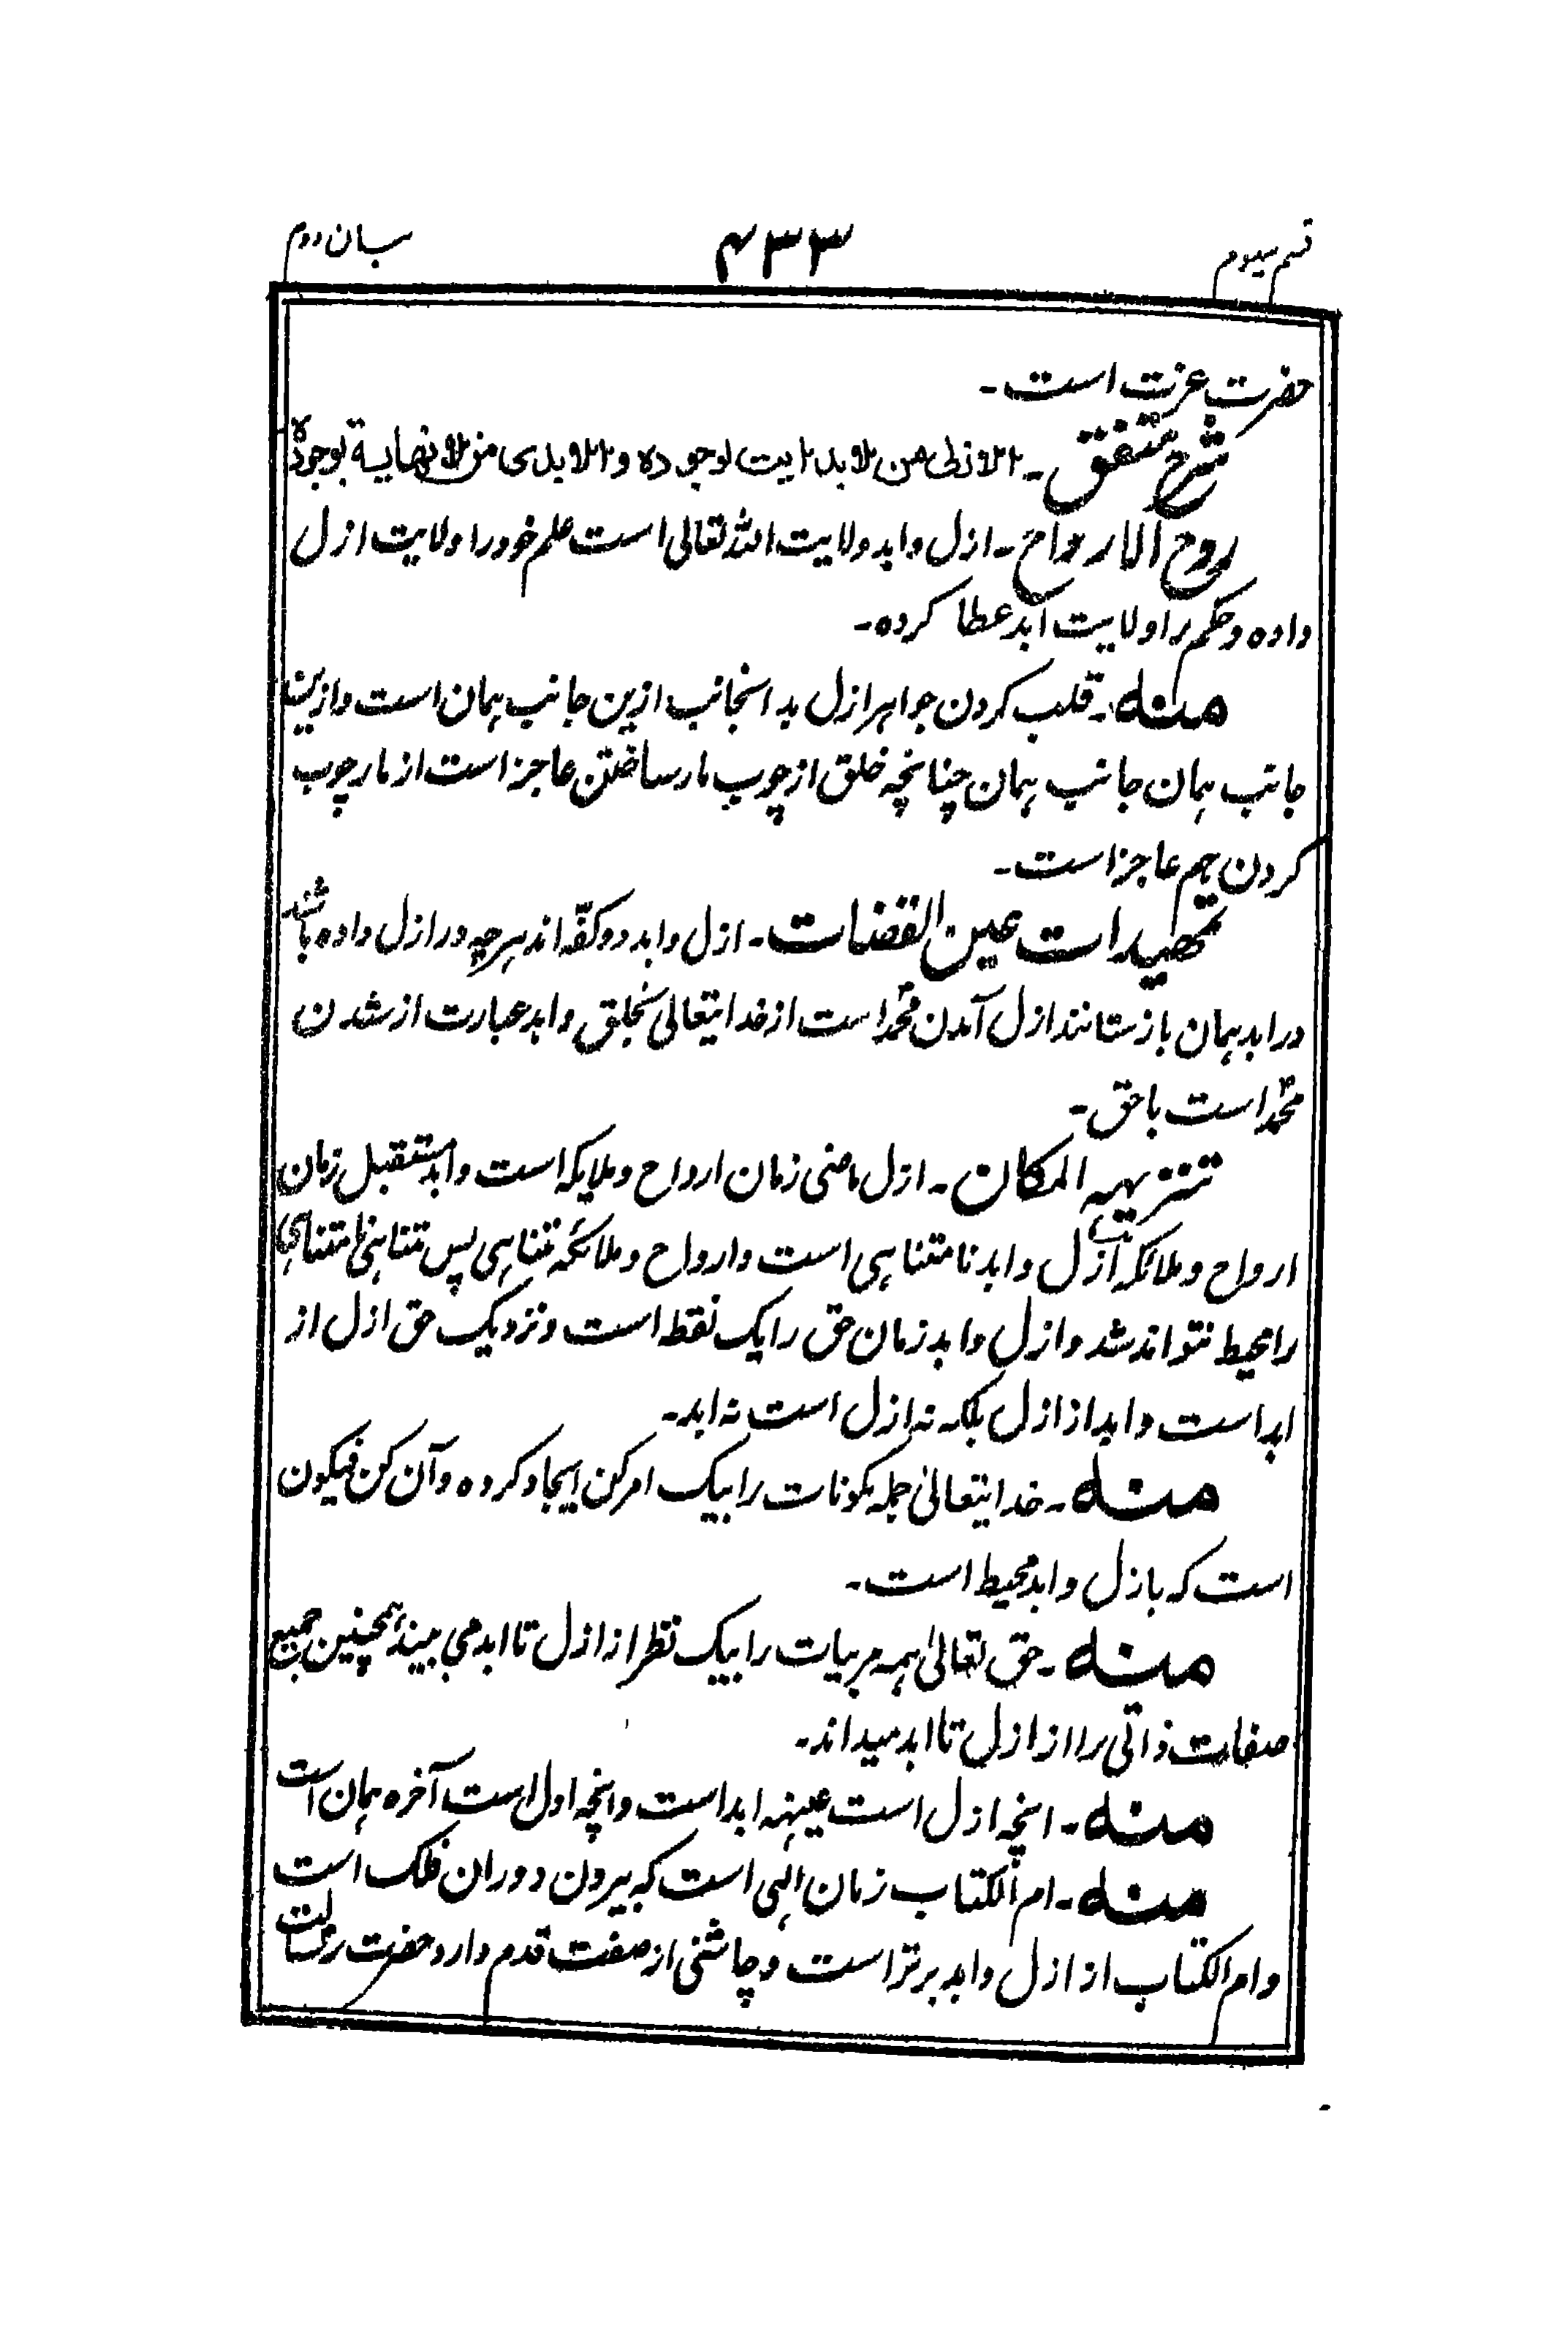 قسم سیوم
۴۳۳
بیان دوم
حضرت عزت است۔
شرح متفق۔ الازلی من لا بدایت لوجوده والابدی من لا نهایة بوجوده
روح الارواح۔ ازل وابد ولایت الله تعالی است علم خود را ولایت ازل
داده وحکم را ولایت ابد عطا کرده۔
منه۔ قلب کردن جواهر ازل بد انجانب ازین جانب همان است وازین
جانب همان جانب همان چنانچه خلق از چوب مار ساختن عاجز است از مار چوب
کردن هم عاجز است۔
تمهیدات عین القضات۔ ازل وابد دو کفّه اند هرچه در ازل داده باشند
در ابد همان باز ستانند ازل آمدن محمدؐ است از خدایتعالی بخلق وابد عبارت از شدن
محمدؐ است با حق۔
تنزیهه المکان۔ ازل ماضی زمان ارواح وملایکه است وابد مستقبل زمان
ارواح وملائکه است ازل وابد نامتناهی است وارواح وملائکه متناهی پس متناهی نامتناهی
را محیط نتواند شد وازل وابد زمان حق را یک نقطه است ونزدیک حق ازل از
ابد است وابد از ازل بلکه نه ازل است نه ابد۔
منه۔ خدایتعالیٰ جمله مکونات را بیک امر کن ایجاد کرده وآن کن فیکون
است که بازل وابد محیط است۔
منه۔ حق تعالیٰ همه مرییات را بیک نظر از ازل تا ابد می بیند همچنین جمیع
صفات ذاتی را از ازل تا ابد میداند۔
منه۔ انچه ازل است عینه ابد است وانچه اول است آخره همان است
منه۔ ام الکتاب زمان الهی است که بیرون دوران فلک است
وام الکتاب از ازل وابد برتر است وچاشنی از صفت قدم دارد حضرت رسالت